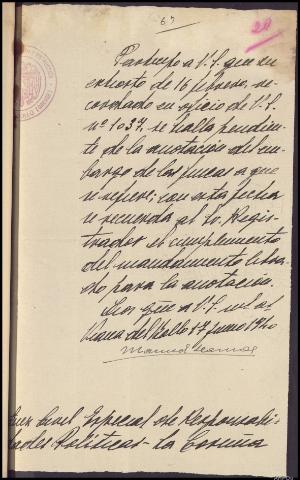 67
29
Participo a V.S. que su
exhorto de 16 febrero, re-
cordado en oficio de V.S.
nº 1037, se halla pendien-
te de la anotación del em-
bargo de las fincas a que
se refiere; con esta fecha
se recuerda al Sr. Regis-
trador el cumplimiento
del mandamiento libra-
do para la anotación.
Dios gũe a V.S. 
del 17 junio 1940
Manuel
Juez Civil Especial de Responsabi-
lidades Políticas - La Coruña